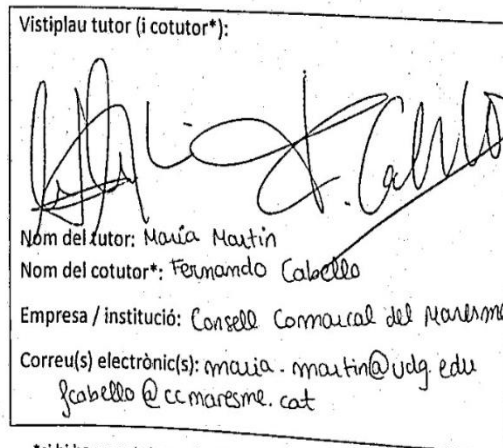 Vistiplau tutor (i cotutor*):
F. Cabello
Nom del tutor: Maria Martin
Nom del cotutor*: Fernando Cabello
Empresa / institució: Consell Comarcal del Maresme
Correu(s) electrònic(s): maria.martin@udg.edu
fcabello@ccmaresme.cat